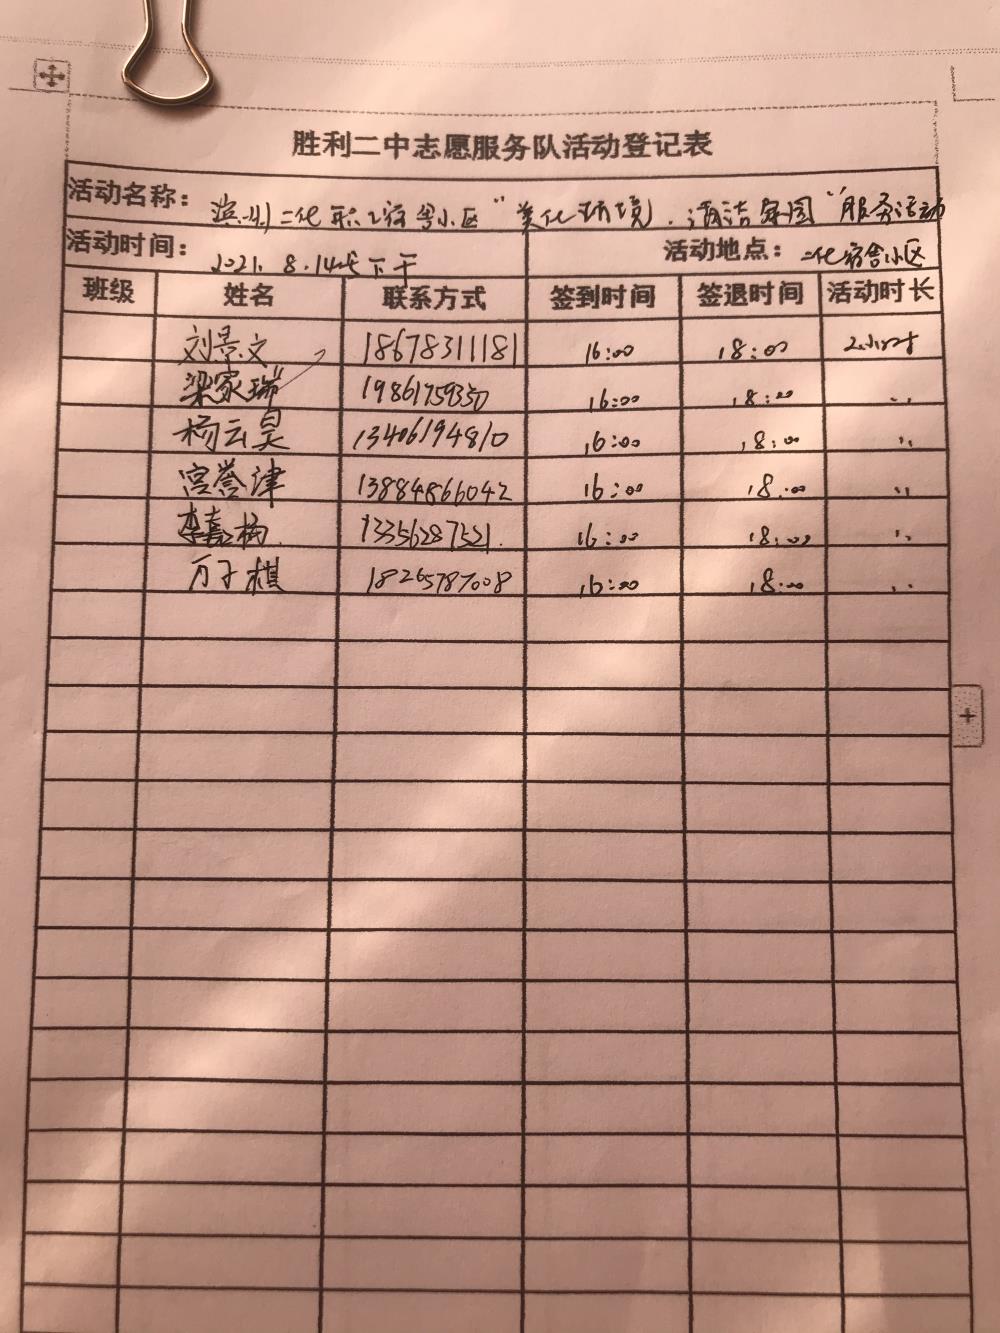 胜利二中志愿服务队活动登记表
活动名称： 滨州二化职工宿舍小区“美化环境.清洁家园”服务活动
活动时间： 2021. 8. 14 下午 活动地点： 二化宿舍小区
班级 姓名 联系方式 签到时间 签退时间 活动时长
刘景文 18678311181 16:00 18:00 2小时
梁家瑞 19861759350 16:00 18:00 ,,
杨云昊 13406194810 16:00 18:00 ,,
宫誉津 13884866042 16:00 18:00 ,,
李嘉楠 13356287521 16:00 18:00 ,,
万子棋 18265787008 16:00 18:00 ,,